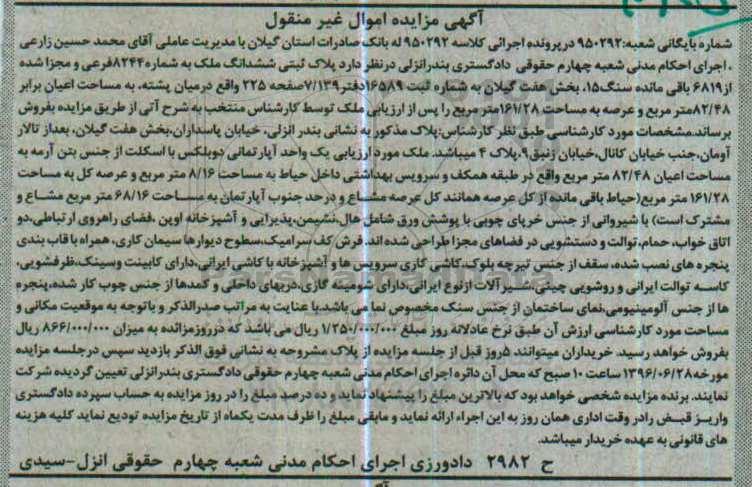 آگهی مزایده اموال غیر منقول
شماره بایگانی شعبه: ۹۵۰۲۹۲ درپرونده اجرائی کلاسه ۹۵۰۲۹۲ له بانک صادرات استان گیلان با مدیریت عاملی آقای محمد حسین زارعی
، اجرای احکام مدنی شعبه چهارم حقوقی دادگستری بندرانزلی درنظر دارد پلاک ثبتی ششدانگ ملک به شماره ۸۲۴۴فرعی و مجزا شده
از۶۸۱۹ باقی مانده سنگ۱۵، بخش هفت گیلان به شماره ثبت ۱۶۵۸۹دفتر۷/۱۳۹صفحه ۲۲۵ واقع درمیان پشته، به مساحت اعیان برابر
۸۲/۴۸متر مربع و عرصه به مساحت ۱۶۱/۲۸متر مربع را پس از ارزیابی ملک توسط کارشناس منتخب به شرح آتی از طریق مزایده بفروش
برساند.مشخصات مورد کارشناسی طبق نظر کارشناس:پلاک مذکور به نشانی بندر انزلی، خیابان پاسداران،بخش هفت گیلان، بعداز تالار
آومان،جنب خیابان کانال،خیابان زنبق۹،پلاک ۴ میباشد. ملک مورد ارزیابی یک واحد آپارتمانی دوبلکس با اسکلت از جنس بتن آرمه به
مساحت اعیان ۸۲/۴۸ متر مربع واقع در طبقه همکف و سرویس بهداشتی داخل حیاط به مساحت ۸/۱۶ متر مربع و عرصه کل به مساحت
۱۶۱/۲۸ متر مربع(حیاط باقی مانده از کل عرصه همانند کل عرصه مشاع و درحد جنوب آپارتمان به مساحت ۶۸/۱۶ متر مربع مشاع و
مشترک است) با شیروانی از جنس خرپای چوبی با پوشش ورق شامل هال،نشیمن،پذیرایی و آشپزخانه اوپن ،فضای راهروی ارتباطی،دو
اتاق خواب، حمام،توالت و دستشویی در فضاهای مجزا طراحی شده اند. فرش کف سرامیک،سطوح دیوارها سیمان کاری، همراه با قاب بندی
پنجره های نصب شده، سقف از جنس تیرچه بلوک،کاشی کاری سرویس ها و آشپزخانه با کاشی ایرانی،دارای کابینت وسینک،ظرفشویی،
کاسه توالت ایرانی و روشویی چینی،شیرآلات ازنوع ایرانی،دارای شومینه گازی،دربهای داخلی و کمدها از جنس چوب کار شده،پنجره
ها از جنس آلومینیومی،نمای ساختمان از جنس سنگ مخصوص نما می باشد.با عنایت به مراتب صدرالذکر و باتوجه به موقعیت مکانی و
مساحت مورد کارشناسی ارزش آن طبق نرخ عادلانه روز مبلغ ۱/۲۵۰/۰۰۰/۰۰۰ ریال می باشد که درروزمزائده به میزان ۸۶۶/۰۰۰/۰۰۰ ریال
بفروش خواهد رسید. خریداران میتوانند ۵روز قبل از جلسه مزایده از پلاک مشروحه به نشانی فوق الذکر بازدید سپس درجلسه مزایده
مورخه ۱۳۹۶/۰۶/۲۸ ساعت ۱۰ صبح که محل آن دائره اجرای احکام مدنی شعبه چهارم حقوقی دادگستری بندرانزلی تعیین گردیده شرکت
نمایند. برنده مزایده شخصی خواهد بود که بالاترین مبلغ را پیشنهاد نماید و ده درصد مبلغ را در روز مزایده به حساب سپرده دادگستری
واریز قبض رادر وقت اداری همان روز به این اجراء ارائه نماید و مابقی مبلغ را ظرف مدت یکماه از تاریخ مزایده تودیع نماید کلیه هزینه
های قانونی به عهده خریدار میباشد.
ح ۲۹۸۲ دادورزی اجرای احکام مدنی شعبه چهارم حقوقی انزل-سیدی